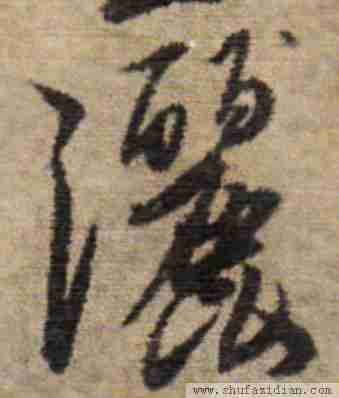 灑
www.shufazidian.com